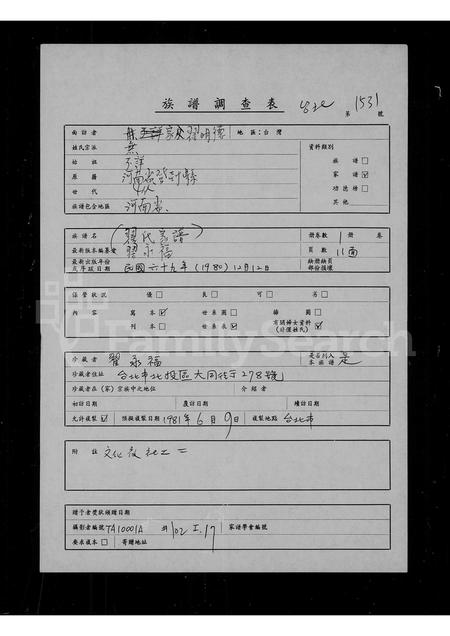 族譜調查表
第 1531 號
面訪者 翟明德 地區:台灣
姓氏宗派 無 資料類別
始祖 不詳 族譜
原籍 河南省登封縣 家譜 ✓
世代 功德榜
族譜包含地區 河南省 其他
族譜名 (翟氏家譜) 冊卷數 1 卷
最新版本編纂者 翟永福 頁數 11面
最新出版年份或序跋日期 民國六十九年(1980)12月12日 缺冊缺頁部份損壞
保管狀況 優 良 可 劣
內容 寫本 ✓ 世系圖 插圖
刊本 世系表 ✓ 有關婦女資料(日僅姓氏) ✓
珍藏者 翟永福 是否列入本族譜 是
珍藏者住址 台北市北投區大同街于278號
珍藏者在(家)宗族中之地位 介紹者
初訪日期 復訪日期 續訪日期
允許複製 ✓ 預擬複製日期 1981年6月9日 複製地點 台北市
附註 文化
贈予者獎狀頒贈日期
攝影者編號 TA10001A #102 I.17 家譜學會編號
要求複本 寄贈地址
FamilySearch